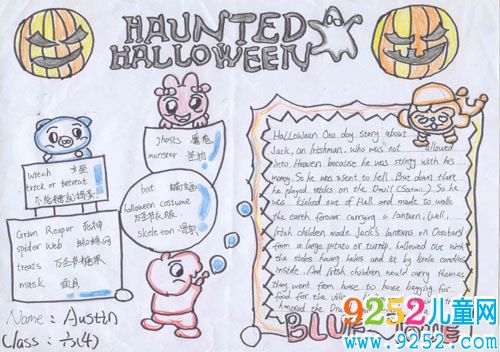 HAUNTED
HALLOWEEN
witch 女巫
trick or retreat
不给糖就捣蛋!
Grim Reaper 死神
spider Web 蜘蛛网
treats 万圣节糖果
mask 面具
ghosts 魔鬼
monster 怪物
bat 蝙蝠
halloween costume
万圣节衣服
skeleton 骨架
Halloween One day story about
Jack, an Irishman, who was not allowed
into Heaven because he was stingy with his
money. So he was sent to hell. But down there
he played tricks on the Devil (Satan). So he
was kicked out of Hell and made to walk
the earth forever carrying a lantern. Well,
Irish children made Jack's lanterns on October31
from a large potato or turnip, hollowed out with
the sides having holes and lit by little candles
inside. And Irish children would carry them as
they went from house to house begging for
food for the
the Devil
BLUE
Name: Austin
Class: 六(4)
9252儿童网
www.9252.com